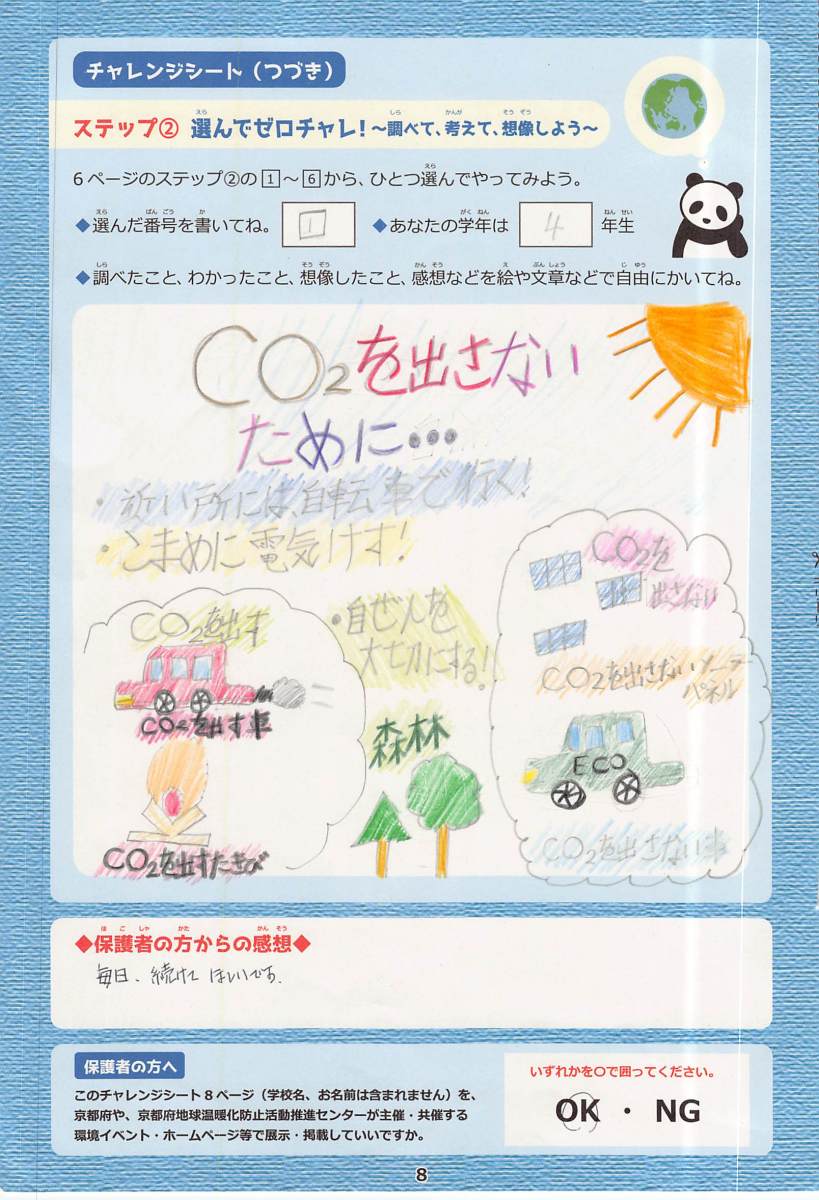 チャレンジシート（つづき）
ステップ② 選んでゼロチャレ！～調べて、考えて、想像しよう～
6ページのステップ②の1～6から、ひとつ選んでやってみよう。
◆選んだ番号を書いてね。 1 ◆あなたの学年は 4 年生
◆調べたこと、わかったこと、想像したこと、感想などを絵や文章などで自由にかいてね。
CO2を出さない
ために…
・近い所には、自転車で行く！
・こまめに電気けす！
CO2を出す
CO2を出す車
CO2を出すたきび
・自ぜんを
大切にする！
森林
CO2を
出さない
CO2を出さないソーラー
パネル
ECO
CO2を出さない車
◆保護者の方からの感想◆
毎日、続けてほしいです。
保護者の方へ
このチャレンジシート8ページ（学校名、お名前は含まれません）を、
京都府や、京都府地球温暖化防止活動推進センターが主催・共催する
環境イベント・ホームページ等で展示・掲載していいですか。
いずれかを○で囲ってください。
OK ・ NG
8